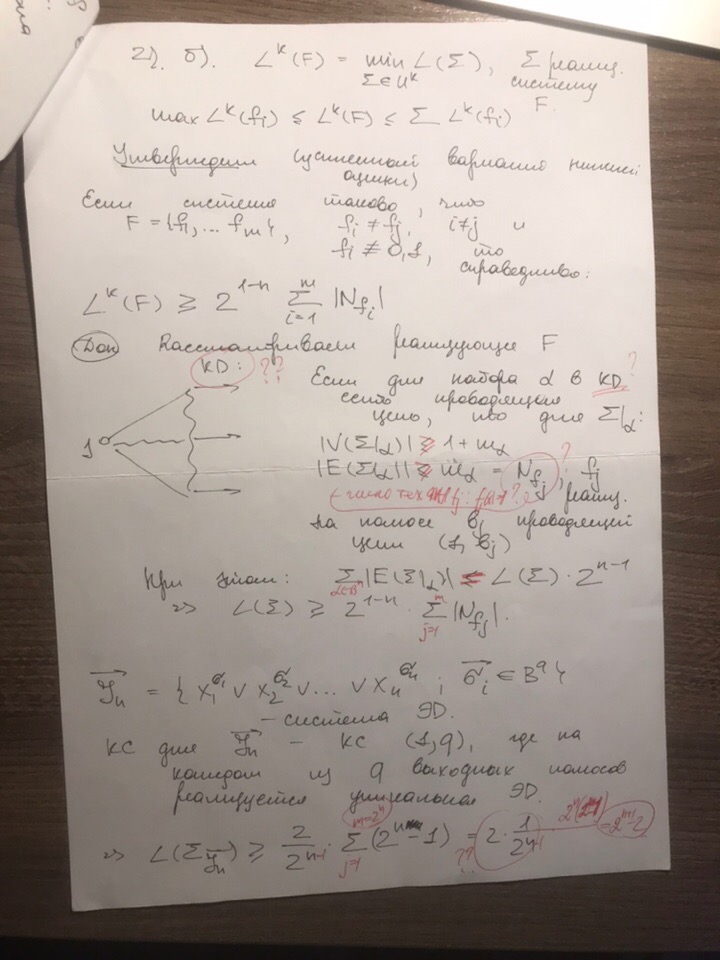 21. б). L^k(F) = min L(Σ), Σ реализ.
Σ∈U^k систему
F.
max L^k(f_i) ≤ L^k(F) ≤ Σ L^k(f_i)
Утвержден (усиленный вариант нижней
оценки)
Если система такова, что
F = {f_1, ... f_m}, f_i ≠ f_j, i≠j и
f_i ≢ 0,1, то
справедливо:
L^k(F) ≥ 2^{1-n} Σ_{i=1}^{m} |N_{f_i}|
Док Рассматриваем реализующую F
КD: ??
Если для набора α в КD ?
есть проводящая
цепь, то для Σ|_α:
1
|V(Σ|_α)| ≥ 1 + m_α
|E(Σ|_α)| ≥ m_α = N_{f_j}, ? f_j
реализ.
на полюсе b_j проводящей
цепи (1, b_j)
При этом: Σ_{α∈B^n} |E(Σ|_α)| ≤ L(Σ) · 2^{n-1}
=> L(Σ) ≥ 2^{1-n} · Σ_{j=1}^{m} |N_{f_j}|.
J_n = { x_1^{σ_1} ∨ x_2^{σ_2} ∨ ... ∨ x_n^{σ_n} ; σ_i ∈ B^q }
– система ЭD.
КС для J_n – КС (1, q), где на
каждом из q выходных полюсов
реализуется уникальная ЭD.
m=2^n
=> L(Σ_{J_n}) ≥ 2/2^{n-1} · Σ_{j=1} (2^n - 1) = 2 · 1/2^{n-1}
??
= 2^{n+1} - 2